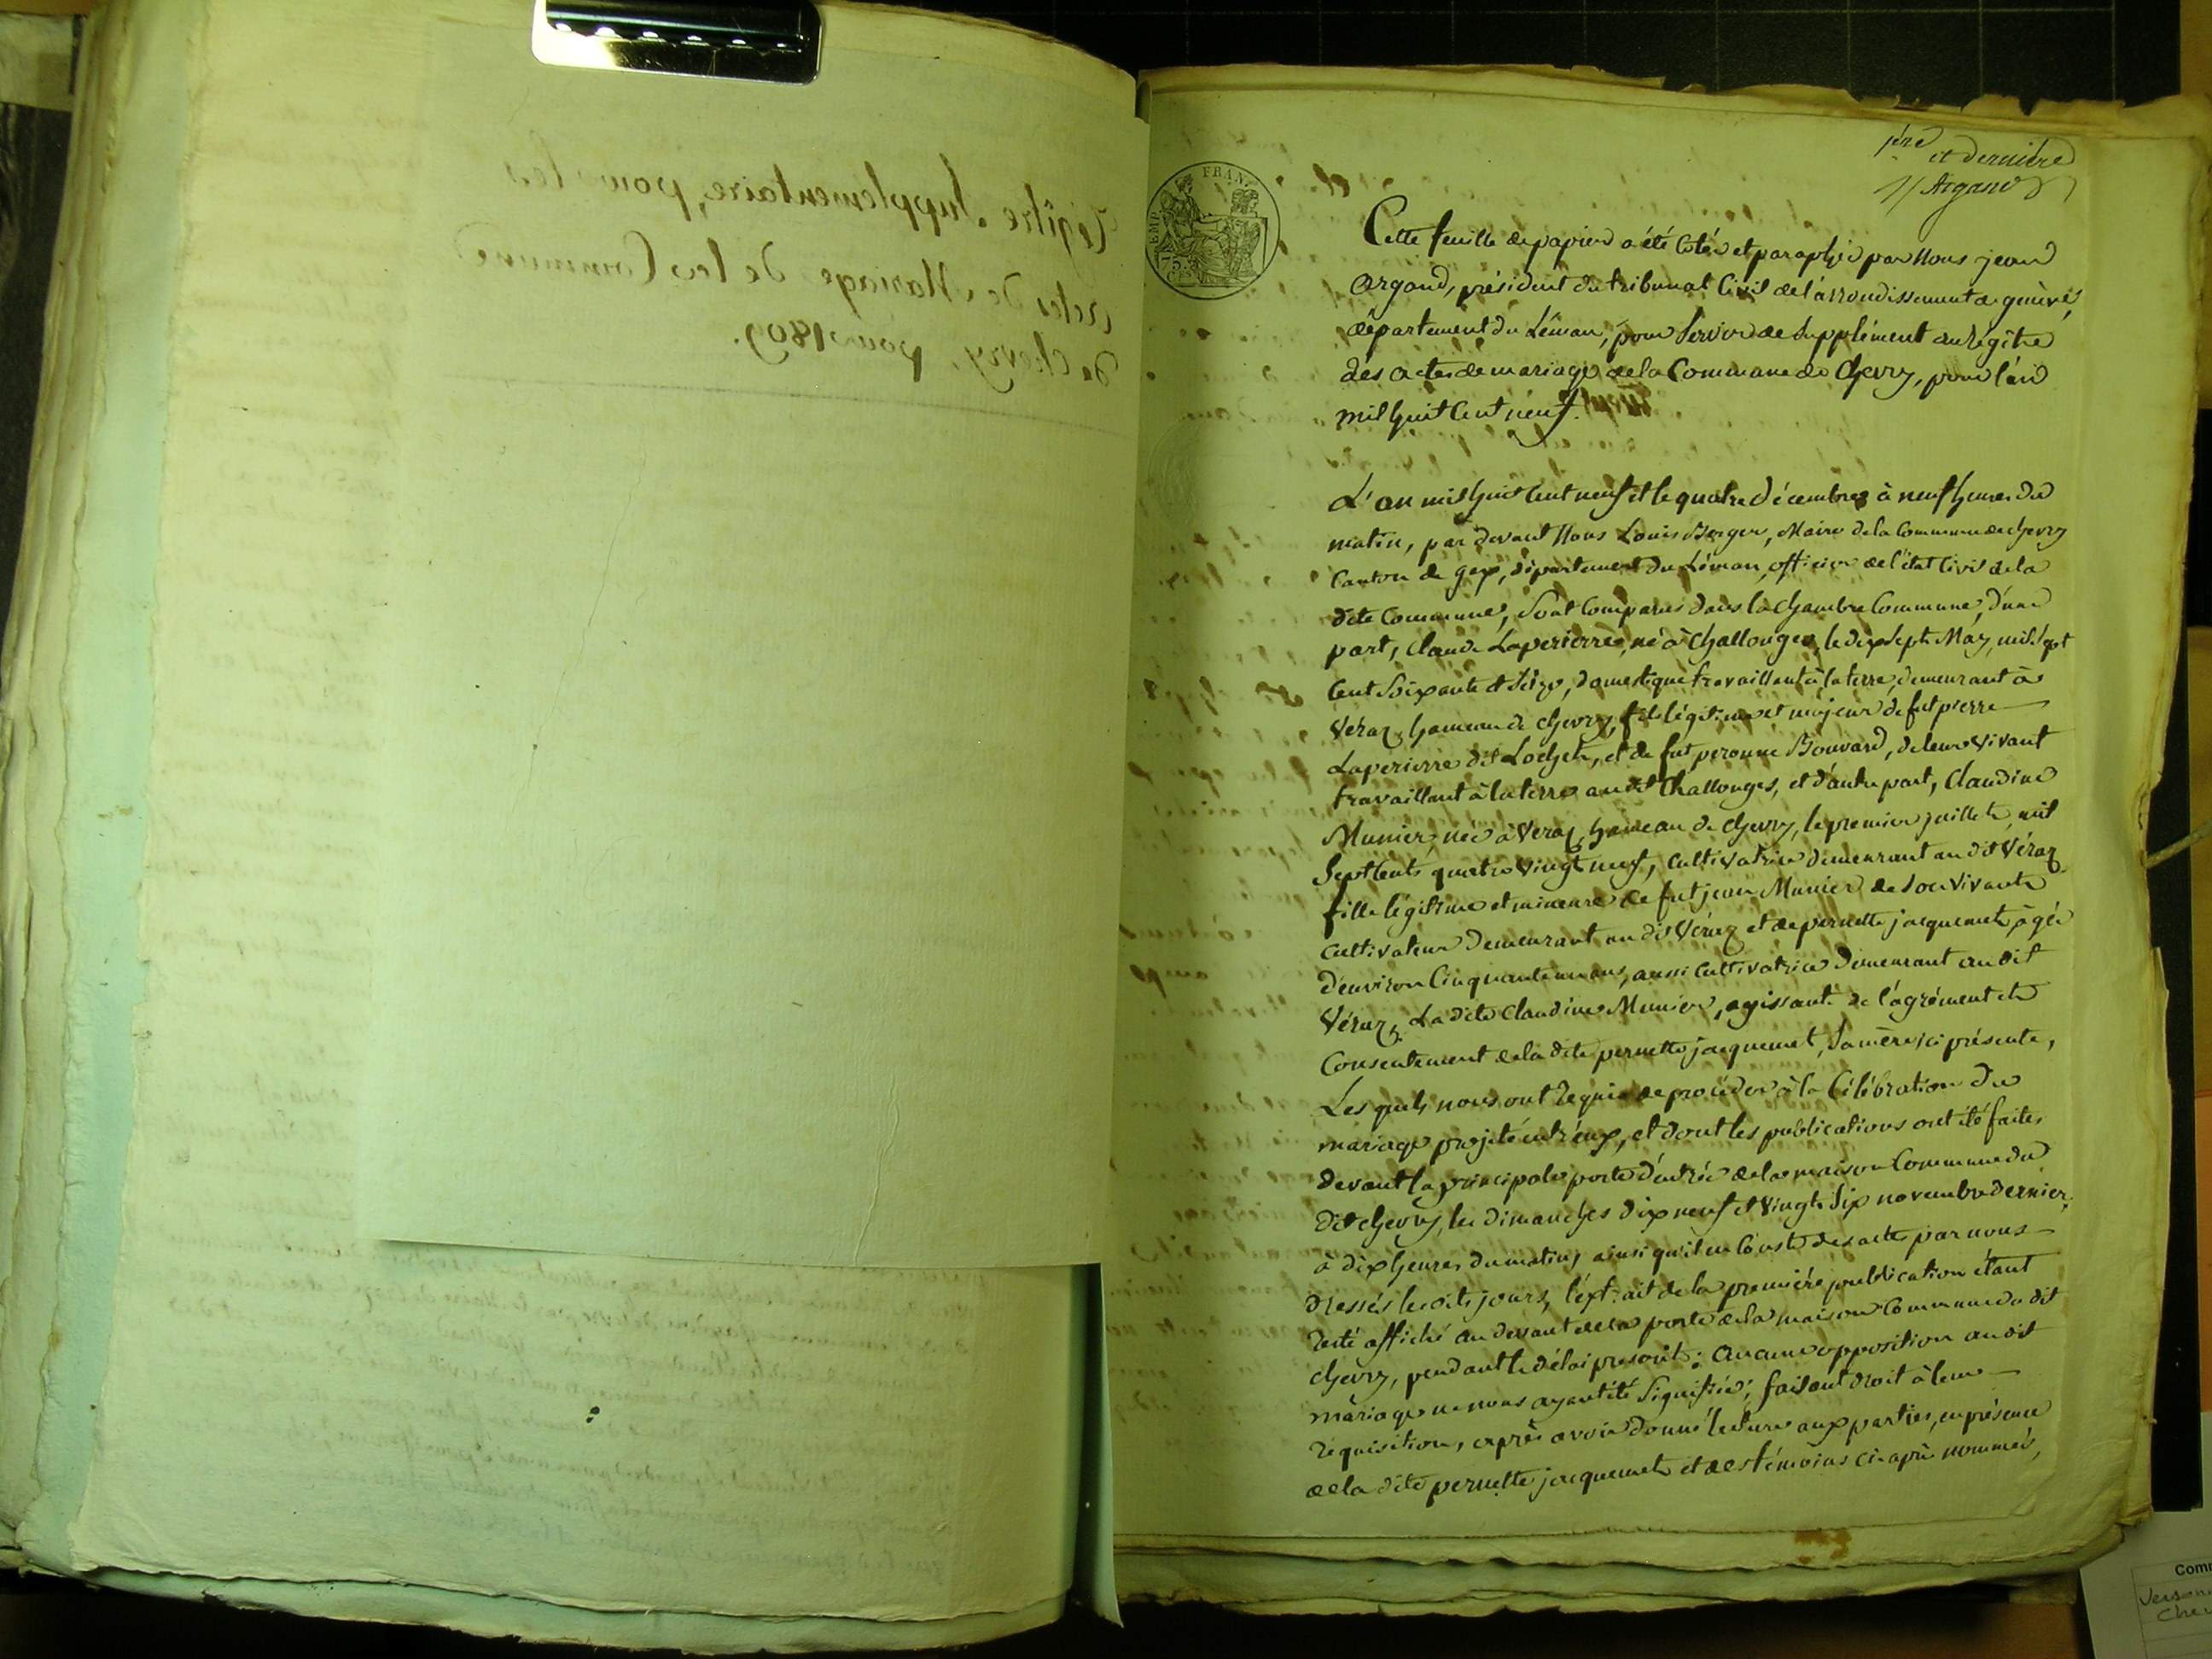 1ère
et dernière
Argand
EMP. FRAN.
75 C.
Cette feuille de papier a été cotée et paraphée par Nous jean
argand, président du tribunal Civil de l'arrondissement de genève,
département du Léman, pour Servir de Supplément au régitre
des actes de mariage de la Commune de Chevry, pour l'an
mil huit Cent neuf.
L'an mil huit Cent neuf et le quatre décembre à neuf heures du
matin, par devant Nous Louis Berger, Maire de la Commune de Chevry
Canton de gex, département du Léman, officier de l'état Civil de la
dite Commune, Sont Comparus dans la chambre Commune, d'une
part, Claude Laperierre, né à Challonges, le dix Sept May, mil Sept
Cent Soixante et Seize, domestique travaillant à la terre, demeurant à
Véraz, hameau de Chevry, fils légitime et majeur de fut pierre
Laperierre dit Lochet, et de fut peronne Bouvard, de leur Vivant
travaillant à la terre au dit Challonges, et d'autre part, Claudine
Munier, née à Veraz, hameau de Chevry, le premier juillet, mil
Sept Cents quatre Vingt neuf, Cultivatrice demeurant au dit Véraz
fille légitime et mineure de fut jean Munier de Son Vivant
Cultivateur demeurant au dit Véraz et de pernette jacquemet, agée
d'environ Cinquante un ans, aussi Cultivatrice demeurant au dit
Véraz, La dite Claudine Munier, agissant de l'agrément et
Consentement de la dite pernette jacquemet, Sa mère ici présente,
Les quels nous ont requis de procéder à la Célébration du
mariage projeté entr'eux, et dont les publications ont été faites
devant la principale porte d'entrée de la maison Commune du
dit Chevry, les dimanches dix neuf et Vingt Six novembre dernier,
à dix heures du matin, ainsi qu'il en Conste des actes par nous
dressés les dits jours, l'extrait de la première publication étant
resté affiché au devant de la porte de la maison Commune du dit
Chevry, pendant le délai prescrit; aucune opposition au dit
mariage ne nous ayant été Signifiée; faisant droit à leur
réquisition, après avoir donné lecture aux parties, en présence
de la dite pernette jacquemet et des témoins ci-après nommés,
Régître Supplementaire, pour les
actes de Mariage de la Commune
de Chevry, pour 1809.
Com